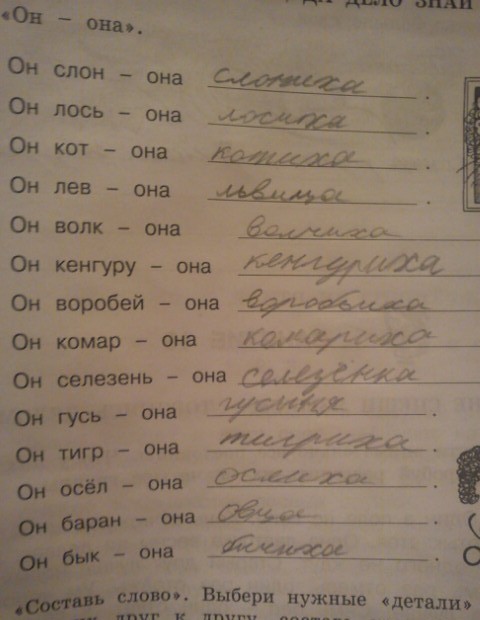 ДА ДЕЛО ЗНАЙ
«Он – она».
Он слон – она слониха.
Он лось – она лосиха.
Он кот – она котиха.
Он лев – она львица.
Он волк – она волчиха
Он кенгуру – она кенгуриха
Он воробей – она воробьиха
Он комар – она комариха
Он селезень – она селезёнка
Он гусь – она гусыня.
Он тигр – она тигриха.
Он осёл – она ослиха.
Он баран – она овца.
Он бык – она бичиха.
«Составь слово». Выбери нужные «детали»
друг к другу,